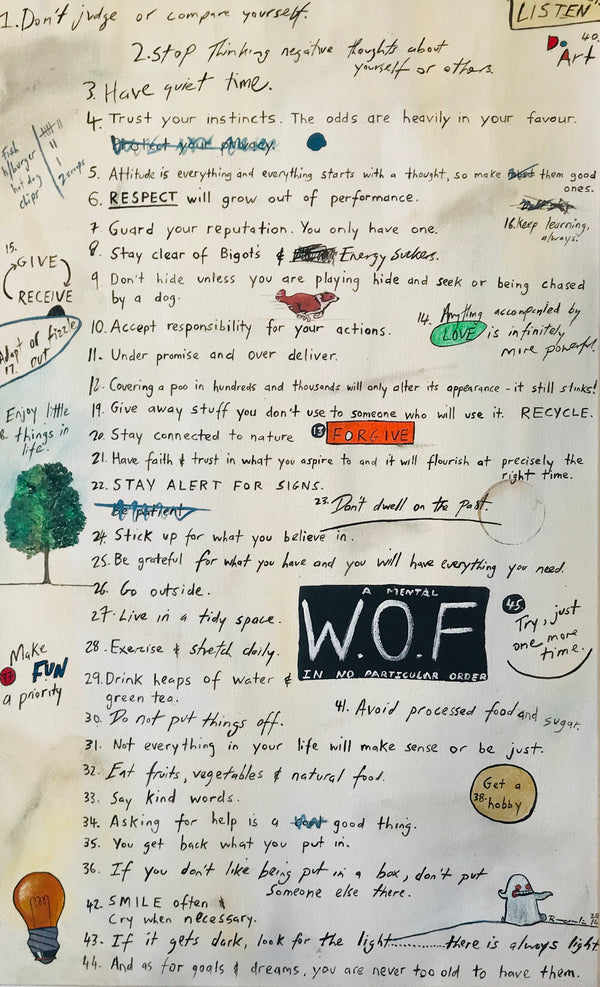 1. Don't judge or compare yourself.
LISTEN
40.
Do Art
2. Stop Thinking negative thoughts about
yourself or others.
3. Have quiet time.
4. Trust your instincts. The odds are heavily in your favour.
Protect your privacy.
fish
h/burger
hot dog
chips
2 scoops
5. Attitude is everything and everything starts with a thought, so make them good
ones.
6. RESPECT will grow out of performance.
16. Keep learning,
always.
7 Guard your reputation. You only have one.
8. Stay clear of Bigots & Energy Suckers.
15.
GIVE
RECEIVE
9. Don't hide unless you are playing hide and seek or being chased
by a dog.
14. Anything accompanied by
LOVE is infinitely
more powerful.
10. Accept responsibility for your actions.
Adapt or fizzle
17. out
11. Under promise and over deliver.
12. Covering a poo in hundreds and thousands will only alter its appearance - it still stinks!
Enjoy little
8. things in
life.
19. Give away stuff you don't use to someone who will use it. RECYCLE.
20. Stay connected to nature
13 FORGIVE
21. Have faith & trust in what you aspire to and it will flourish at precisely the
right time.
22. STAY ALERT FOR SIGNS.
be patient
23. Don't dwell on the past.
24. Stick up for what you believe in.
25. Be grateful for what you have and you will have everything you need.
26. Go outside.
A MENTAL
W.O.F
IN NO PARTICULAR ORDER
45
Try, just
one more
time.
27. Live in a tidy space.
28. Exercise & stretch daily.
Make
37 FUN
a priority
29. Drink heaps of water &
green tea.
30. Do not put things off.
41. Avoid processed food and sugar.
31. Not everything in your life will make sense or be just.
32. Eat fruits, vegetables & natural food.
33. Say kind words.
Get a
38. hobby
34. Asking for help is a good thing.
35. You get back what you put in.
36. If you don't like being put in a box, don't put
someone else there.
42. SMILE often &
Cry when necessary.
43. If it gets dark, look for the light..........there is always light
44. And as for goals & dreams, you are never too old to have them.